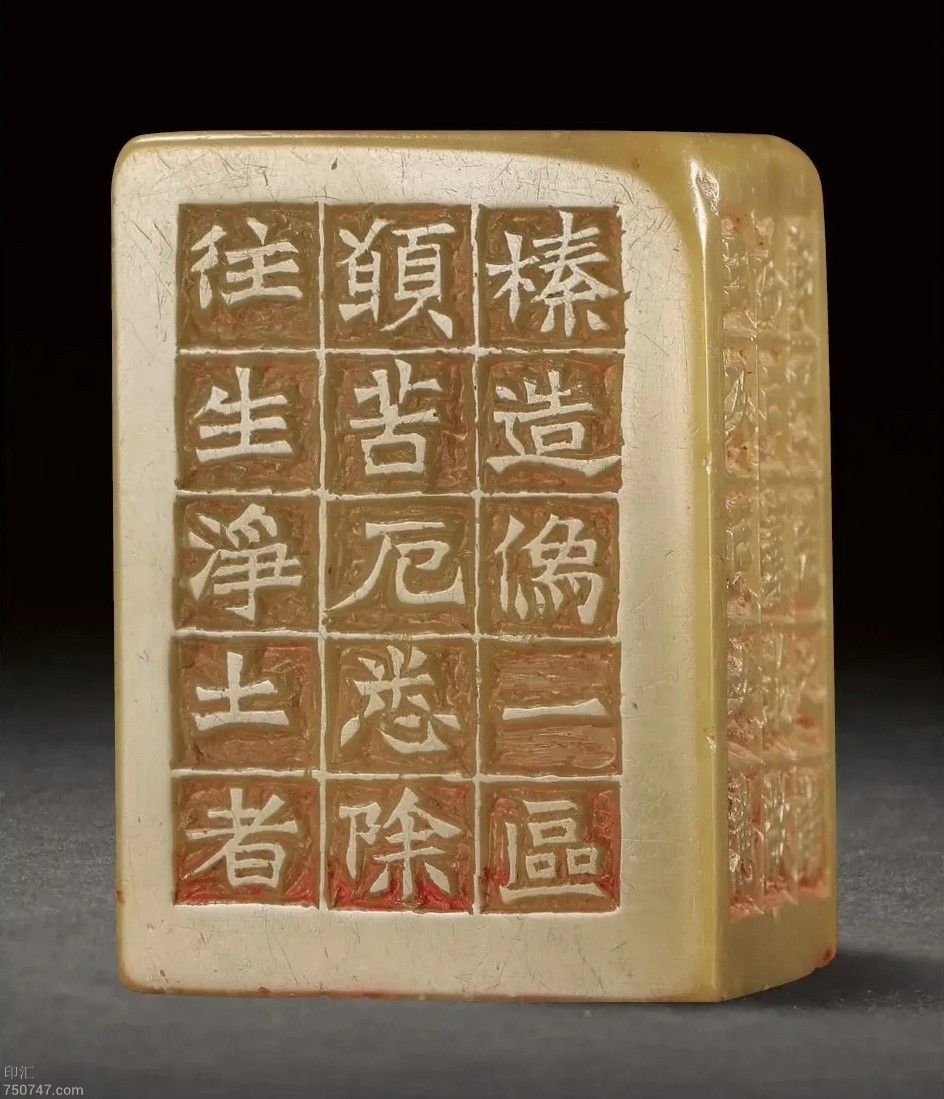 榛造像一區
願苦厄悉除
往生淨土者
印汇
750747.com